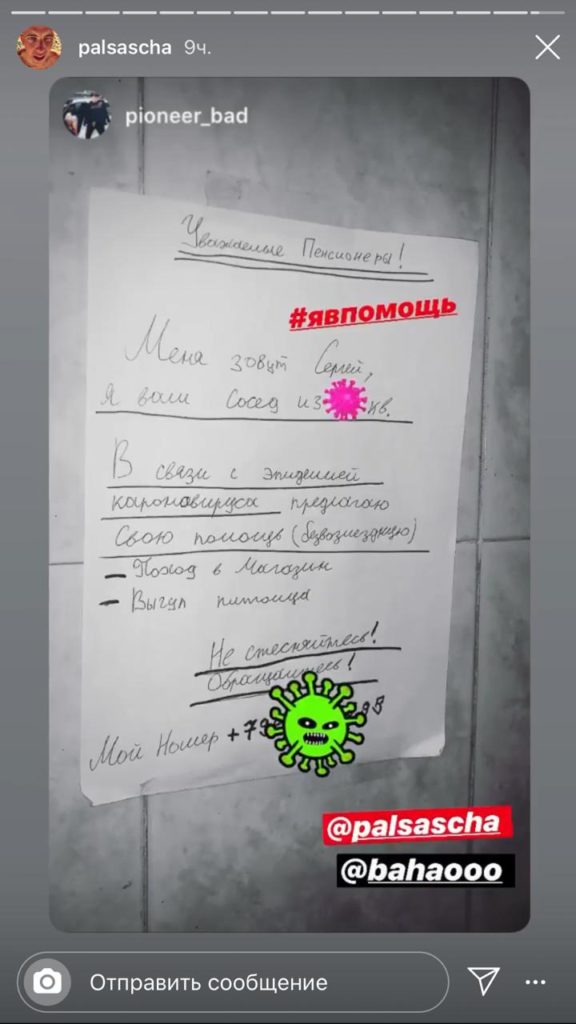 palsascha 9ч.
pioneer_bad
Уважаемые Пенсионеры!
#ЯВПОМОЩЬ
Меня зовут Сергей,
Я ваш Сосед из кв.
В связи с эпидемией
каронавируса предлагаю
Свою помощь (безвозмездную)
- Поход в Магазин
- Выгул питомца
Не стесняйтесь!
Обращайтесь!
Мой Номер +79
@palsascha
@bahaooo
Отправить сообщение